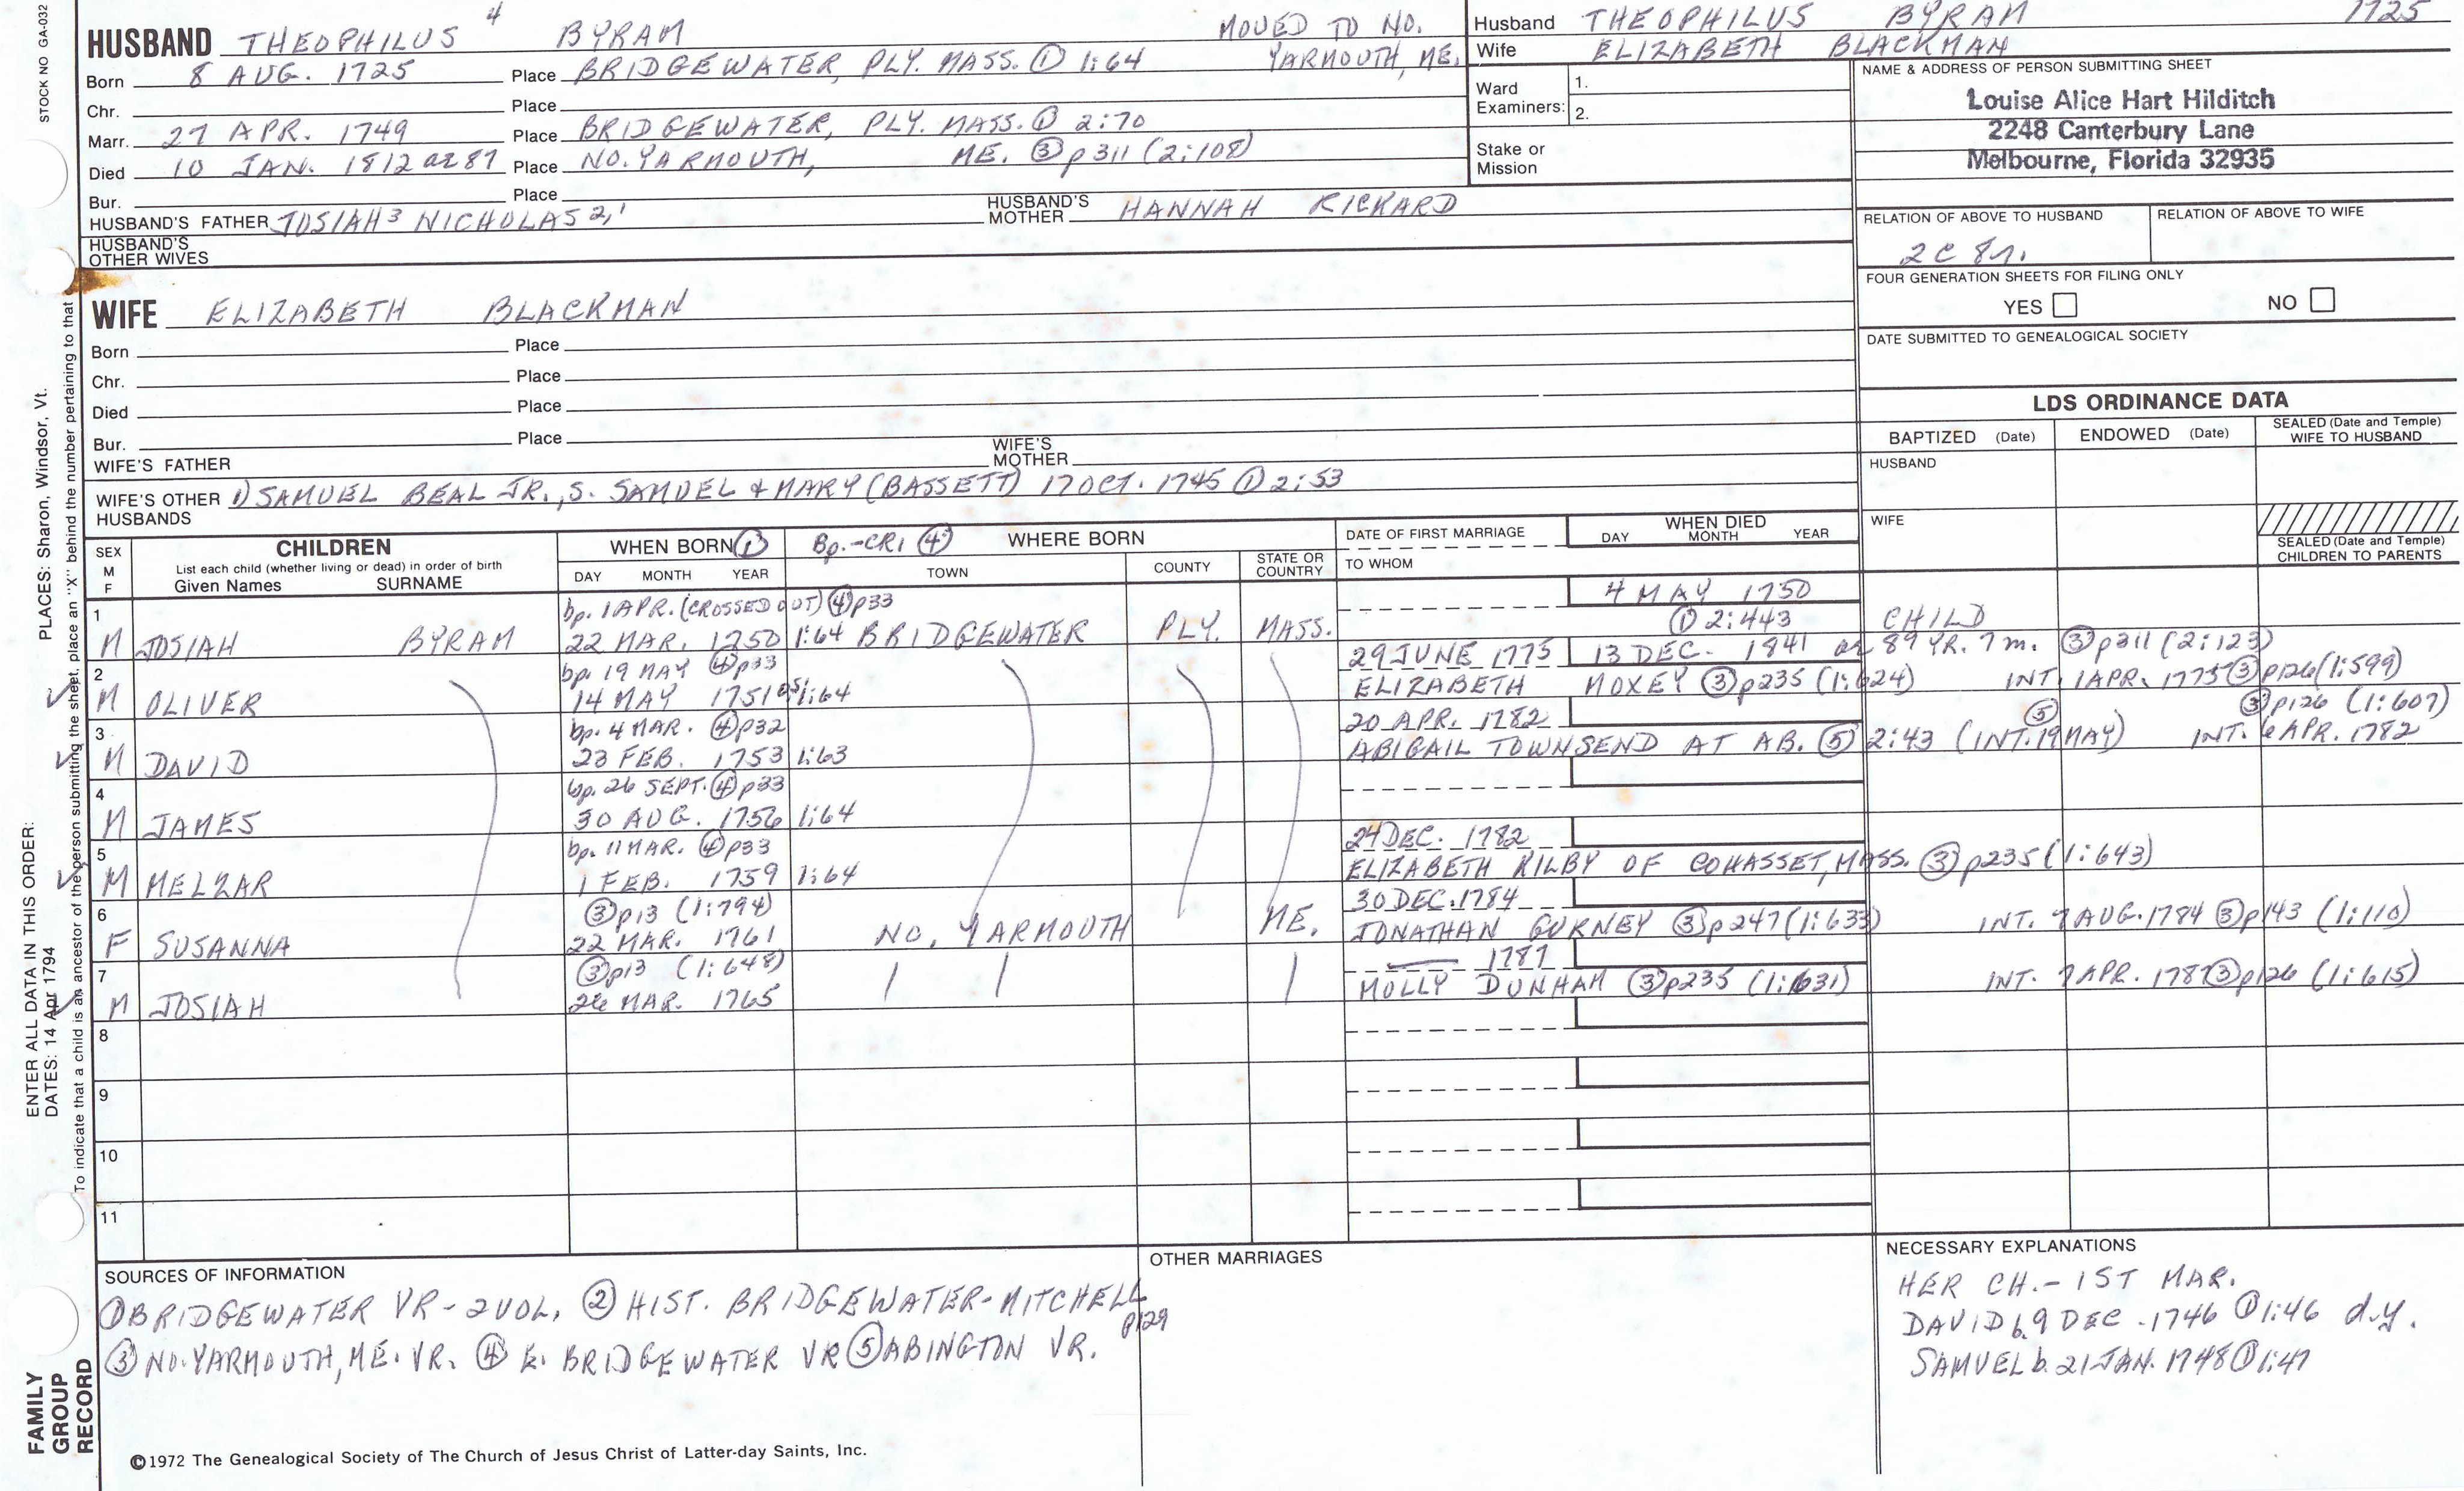 STOCK NO GA-032
HUSBAND THEOPHILUS 4 BYRAM MOVED TO NO. YARMOUTH, ME.
Born 8 AUG. 1725 Place BRIDGEWATER, PLY. MASS. ① 1:64
Chr. Place
Marr. 27 APR. 1749 Place BRIDGEWATER, PLY. MASS. ① 2:70
Died 10 JAN. 1812 ae 87 Place NO. YARMOUTH, ME. ③ p311 (2:108)
Bur. Place
HUSBAND'S FATHER JOSIAH 3 NICHOLAS 2,1 HUSBAND'S MOTHER HANNAH RICKARD
HUSBAND'S OTHER WIVES
Husband THEOPHILUS BYRAM 1725
Wife ELIZABETH BLACKMAN
Ward Examiners: 1.
2.
Stake or Mission
NAME & ADDRESS OF PERSON SUBMITTING SHEET
Louise Alice Hart Hilditch
2248 Canterbury Lane
Melbourne, Florida 32935
RELATION OF ABOVE TO HUSBAND RELATION OF ABOVE TO WIFE
2C 8r.
FOUR GENERATION SHEETS FOR FILING ONLY
YES NO
DATE SUBMITTED TO GENEALOGICAL SOCIETY
WIFE ELIZABETH BLACKMAN
Born Place
Chr. Place
Died Place
Bur. Place
WIFE'S FATHER WIFE'S MOTHER
WIFE'S OTHER HUSBANDS 1) SAMUEL BEAL JR., S. SAMUEL & MARY (BASSETT) 17 OCT. 1745 ① 2:53
LDS ORDINANCE DATA
BAPTIZED (Date) ENDOWED (Date) SEALED (Date and Temple) WIFE TO HUSBAND
HUSBAND
WIFE
SEALED (Date and Temple) CHILDREN TO PARENTS
SEX M F
CHILDREN
List each child (whether living or dead) in order of birth
Given Names SURNAME
WHEN BORN ① Bp.-CR1 ④ WHERE BORN
DAY MONTH YEAR TOWN COUNTY STATE OR COUNTRY
DATE OF FIRST MARRIAGE
TO WHOM
WHEN DIED
DAY MONTH YEAR
1 bp. 1 APR. (CROSSED OUT) ④ p33 4 MAY 1750
M JOSIAH BYRAM 22 MAR. 1750 1:64 BRIDGEWATER PLY. MASS. ① 2:443 CHILD
2 bp. 19 MAY ④ p33 29 JUNE 1775 13 DEC. 1841 ae 89 YR. 7 m. ③ p311 (2:123)
M OLIVER 14 MAY 1751 1:64 ELIZABETH MOXEY ③ p235 (1:624) INT. 1 APR. 1775 ③ p126 (1:599)
3 bp. 4 MAR. ④ p32 20 APR. 1782 ③ p126 (1:607)
M DAVID 23 FEB. 1753 1:63 ABIGAIL TOWNSEND AT AB. ⑤ 2:43 (INT. 19 MAY) ⑤ INT. 6 APR. 1782
4 bp. 26 SEPT. ④ p33
M JAMES 30 AUG. 1756 1:64
5 bp. 11 MAR. ④ p33 24 DEC. 1782
M MELZAR 1 FEB. 1759 1:64 ELIZABETH KILBY OF COHASSET, MASS. ③ p235 (1:643)
6 ③ p13 (1:794) 30 DEC. 1784
F SUSANNA 22 MAR. 1761 NO. YARMOUTH ME. JONATHAN GURNEY ③ p247 (1:633) INT. 7 AUG. 1784 ③ p143 (1:110)
7 ③ p13 (1:648) 1787
M JOSIAH 26 MAR. 1765 MOLLY DUNHAM ③ p235 (1:631) INT. 7 APR. 1787 ③ p126 (1:615)
8
9
10
11
SOURCES OF INFORMATION
① BRIDGEWATER VR - 2 VOL, ② HIST. BRIDGEWATER - MITCHELL p129
③ NO. YARMOUTH, ME. VR. ④ E. BRIDGEWATER VR ⑤ ABINGTON VR.
OTHER MARRIAGES
NECESSARY EXPLANATIONS
HER CH. - 1ST MAR.
DAVID b. 9 DEC. 1746 ① 1:46 d.y.
SAMUEL b. 21 JAN. 1748 ① 1:47
©1972 The Genealogical Society of The Church of Jesus Christ of Latter-day Saints, Inc.
FAMILY GROUP RECORD
ENTER ALL DATA IN THIS ORDER:
DATES: 14 Apr 1794
PLACES: Sharon, Windsor, Vt.
To indicate that a child is an ancestor of the person submitting the sheet, place an "X" behind the number pertaining to that